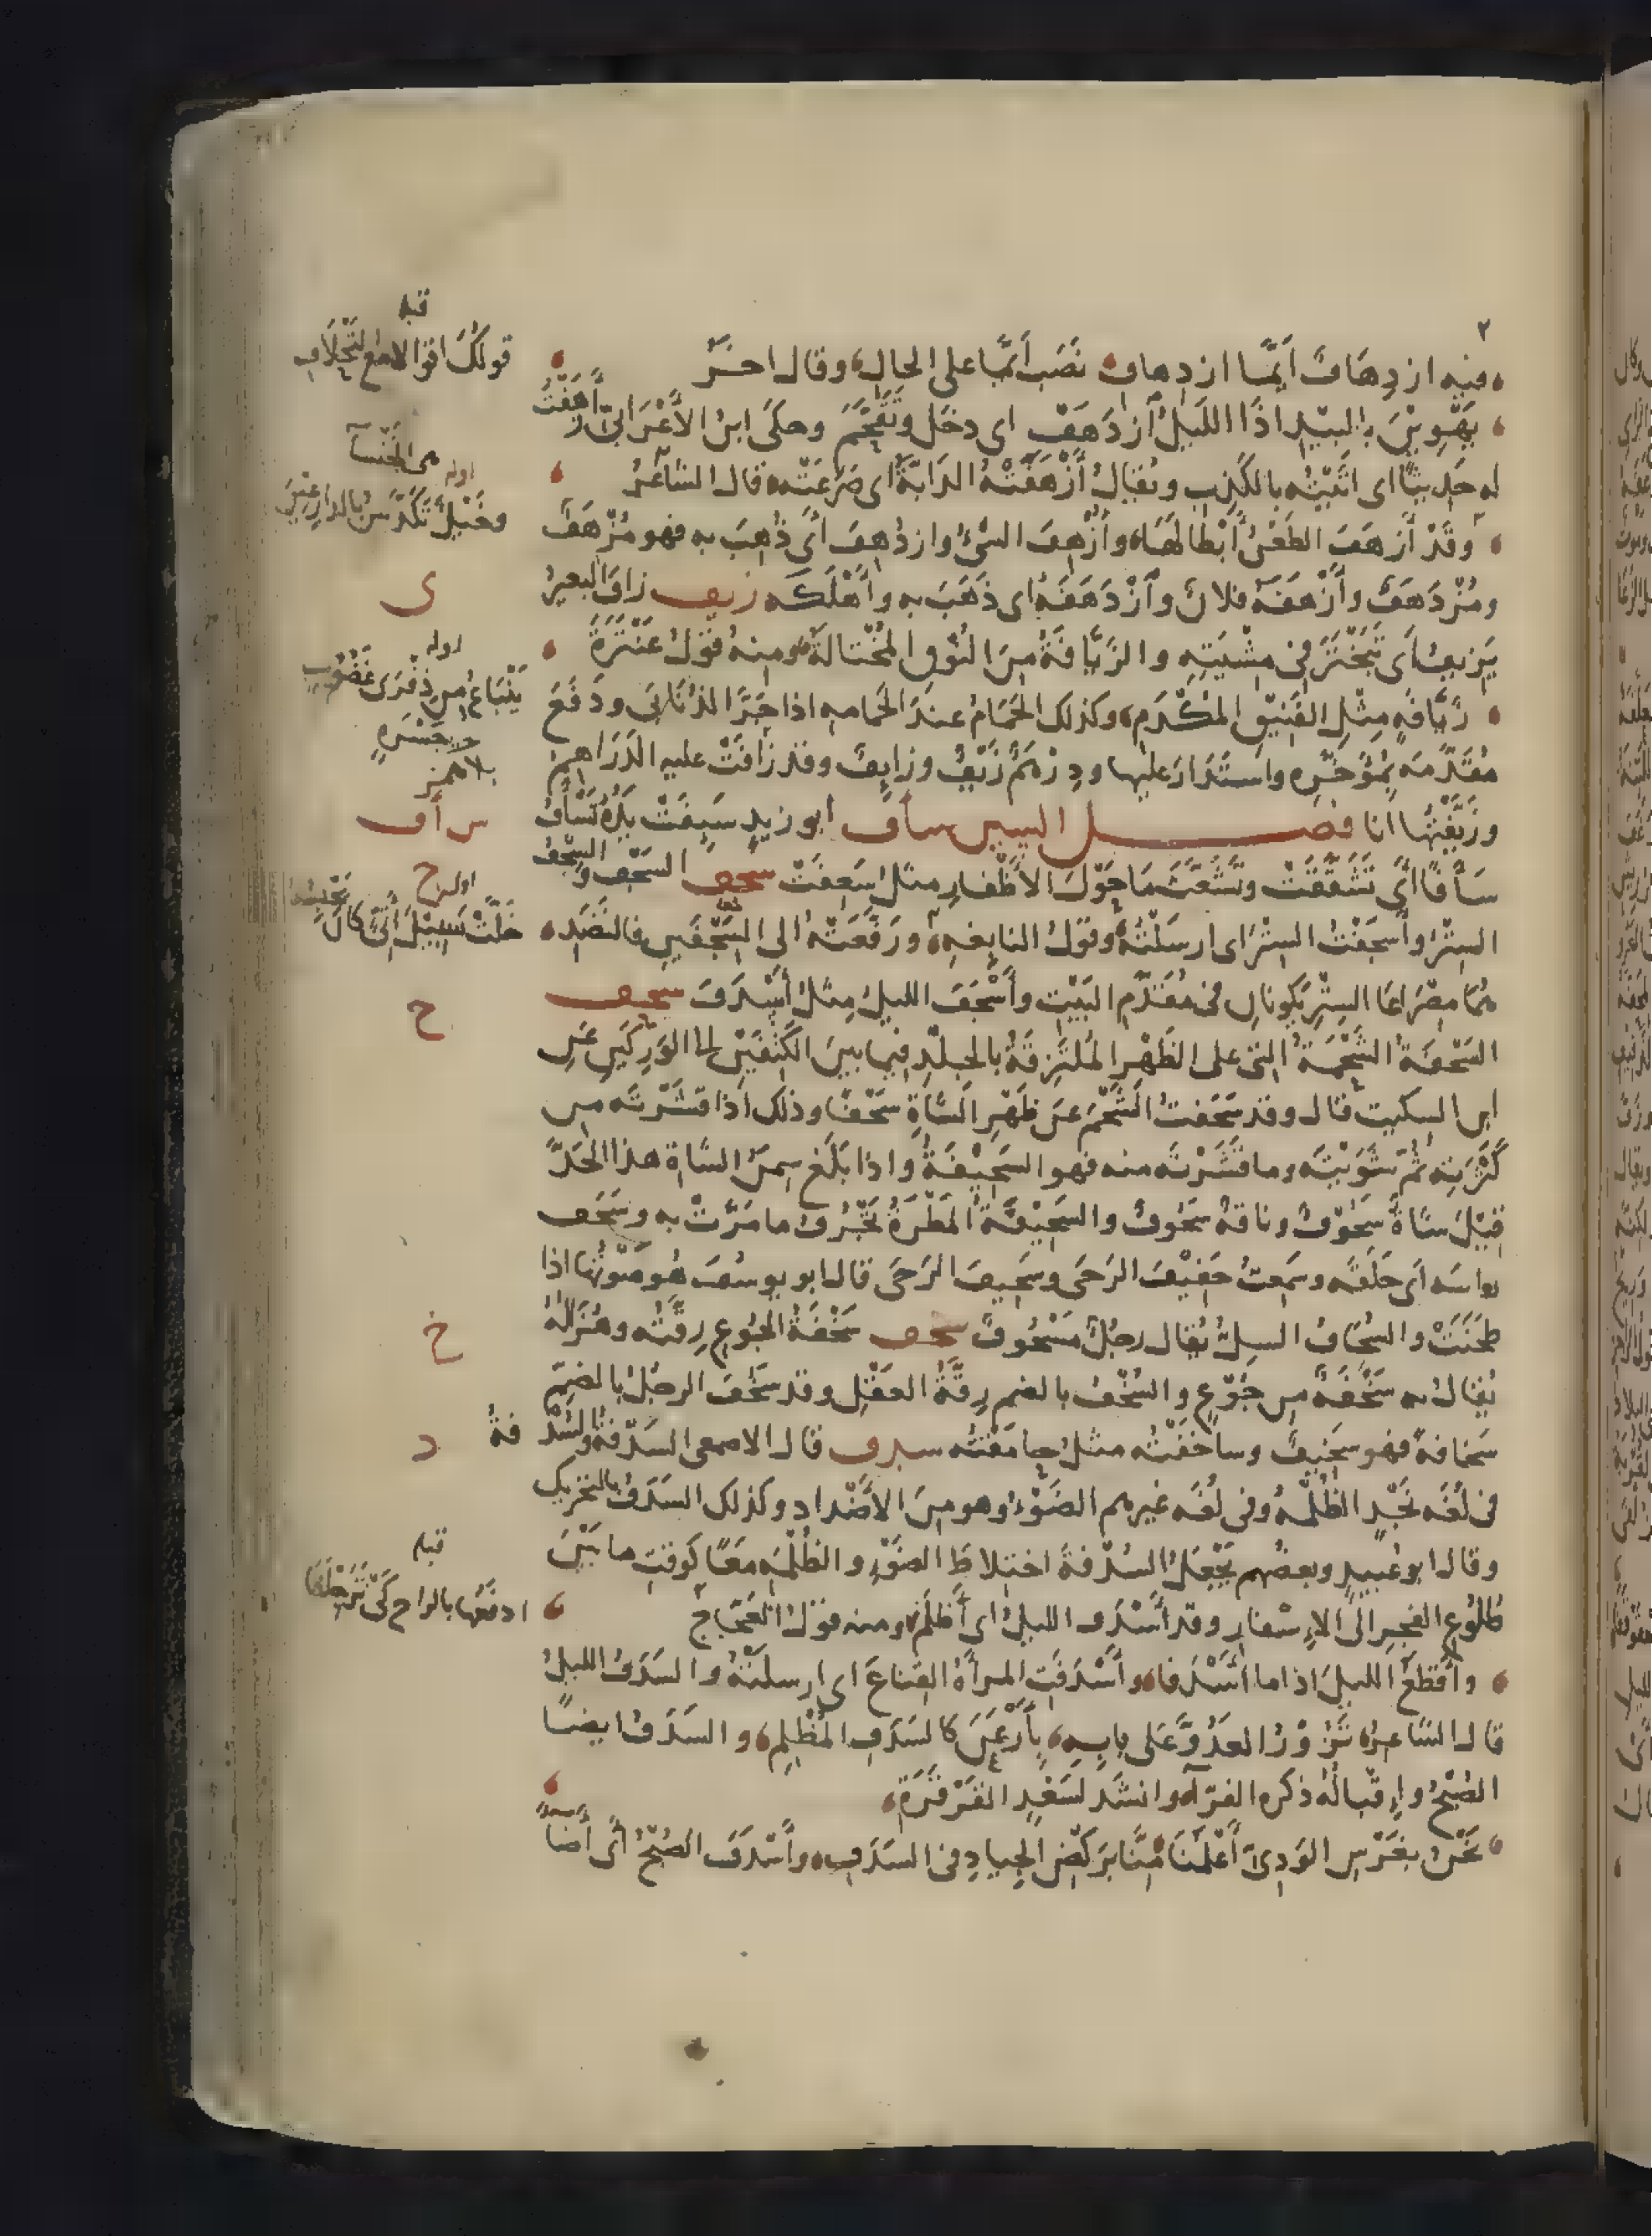 ٢
فيه ازدِهَافٌ أَيَّمَا ازدِهاف نَصَبَ أَيَّمَا على الحال وقال اخَرُ
يَهْوِيْنَ بِالبِيْدِ اذَا اللَيلُ ازدَهَفْ اى دخل وتَقَحَّمَ وحكَى ابنُ الأَعْرَابىّ أَزْهَفْتُ
له حديثًا اى اتَيْتُه بالكَذِبِ ويُقالُ أَزْهَفَتْهُ الدَابَّةُ اى صَرَعَتْه قال الشاعرُ
وقَدْ أَزهَفَ الطَعْنُ أَبْطالَهَا وأُزْهِفَ الشىُ وازدُهِفَ أى ذُهِبَ به فهو مُزْهَفٌ
ومُزْدَهَفٌ وأَزْهَفَهُ فلانٌ وازْدَهَفَهُ اى ذَهَبَ به وأَهْلَكَه زيف زافَ البعيرُ
يَزيفُ اى تَبَخْتَرَ فى مِشْيَتِهِ والزَيَّافَةُ مِنَ النُوقِ المُخْتالَةُ ومنهُ قولُ عَنْتَرَةَ
زَيَّافَةٍ مِثْلِ الفَنِيْقِ المُكْدَمِ وكذلك الحَمَامُ عندَ الحَمامه اذا جَرَّ الذُنَابَى ودَفَعَ
مُقَدَّمَه بمُؤَخَّرِه واستَدَارَ عليها ودِرْهَمٌ زَيْفٌ وزايِفٌ وقد زَافَتْ عليه الدَرَاهِمُ
وزَيَّفْتُها انا فصل السين سأف ابو زيدٍ سَئِفَتْ يَدُهُ تَسْأَفُ
سَأَفًا أَى تَشَقَّقَتْ وتَشَعَّثَ مَا حَوْلَ الأَظْفارِ مثل سَعِفَتْ سجف السَجْفُ والسِجْفُ
السِتْرُ وأَسجَفْتُ السِتْرَ اى ارسَلْتُهُ وقولُ النابِغهِ ورَفَّعَتْهُ الى السِجْفَينِ فالنَضَدِ
هُمَا مِصْرَاعَا السِتْرِ يَكونانِ فى مُقَدَّمِ البَيْتِ وأَسْجَفَ الليلُ مِثلُ أَسْدَفَ سحف
السَحْفَةُ الشَحْمَةُ التى على الظَهْرِ المُلتَزِقَةُ بالجِلْدِ فيما بينَ الكَتِفَيْنِ الى الوَرِكَيْنِ عَنِ
ابن السكيت قال وقد سَحَفتُ الشَحْمَ عَن ظَهْرِ الشَاةِ سَحْفًا وذلك اذا قشَرْتَه من
كَثْرَتِه ثُمَّ شَوَيْتَه وما قَشَرْتَه منه فهو السَحِيْفَةُ واذا بَلَغ سِمَنُ الشاةِ هذا الحَدَّ
قِيْلَ شاةٌ سَحُوْفٌ وناقةٌ سَحُوفٌ والسَحِيْفَةُ المَطْرَةُ تَجْرُفُ ما مَرَّتْ به وسَحَفَ
راسَه اى حَلَقَه وسَمِعتُ حَفيْفَ الرَحَى وسَحِيفَ الرَحَى قال ابو يوسُفَ هُو صَوْتُها اذا
طَحَنَتْ والسُحَافُ السِلُّ يُقال رجلٌ مَسْحُوفٌ سخف سَخْفَةُ الجُوعِ رِقَّتُه وهُزَالُهُ
يُقالُ به سَخْفَةٌ من جُوْعٍ والسُخْفُ بالضم رِقَّةُ العَقْلِ وقد سَخُفَ الرجلُ بالضَمِّ
سَخافةً فهو سَخِيفٌ وساخَفْتُه مثلُ حامَقْتُه سدف قال الاصمعى السَدْفةُ والسُدْفةُ
فى لُغَه نَجْدٍ الظُلْمَهُ وفى لُغَه غيرِهم الضَوْءُ وهو مِنَ الأَضْدادِ وكذلك السَدَفُ بالتحريك
وقال ابو عُبيدٍ وبعضُهم يَجْعَلُ السُدْفةَ اختلاطَ الضَوْءِ والظُلْمَهِ مَعًا كوقتِ ما بَيْنَ
طُلُوعِ الفَجرِ الى الإِسْفارِ وقد أَسْدَفَ الليلُ اى أَظلَمَ ومنه قولُ العَجّاج
وأَقطَعُ الليلَ اذا ما أَسْدَفا وأَسْدَفَتِ المرأَةُ القِناعَ اى ارسلَتْهُ والسَدَفُ الليلُ
قال الشاعرُ نَزُوْرُ العَدُوَّ عَلى بابِه بِأَرْعَنَ كالسَدَفِ المُظْلِمِ والسَدَفُ ايضًا
الصُبْحُ واِقبالُهُ ذكره الفرّاءُ وانشَدَ لسَعْدِ القَرْقَرَةِ
نَحْنُ بغَرْسِ الوَدِىّ أَعْلَمُنَا مِنَّا بِرَكْضِ الجِيادِ فى السَدَفِ وأَسْدَفَ الصُبْحُ أى أَضاءَ
قبله
قولُكَ اقوالا مع التَحْلَافِ
هى الخَنْسآء
اوله
وخَيْلٌ تَكَدَّسُ بالدارِعِيْنَ
ى
اوله
يَنْبَاعُ من ذِفْرَى غَضُوْبٍ
جَسْرَةٍ
بلا همز
س أ ف
ج
اوله
خَلَّتْ سَبِيْلَ أَتِىٍّ كان يَحْبِسُهُ
ح
خ
د
قبله
ادفَعُها بالراحِ كَىْ تَزَحْلَفَا